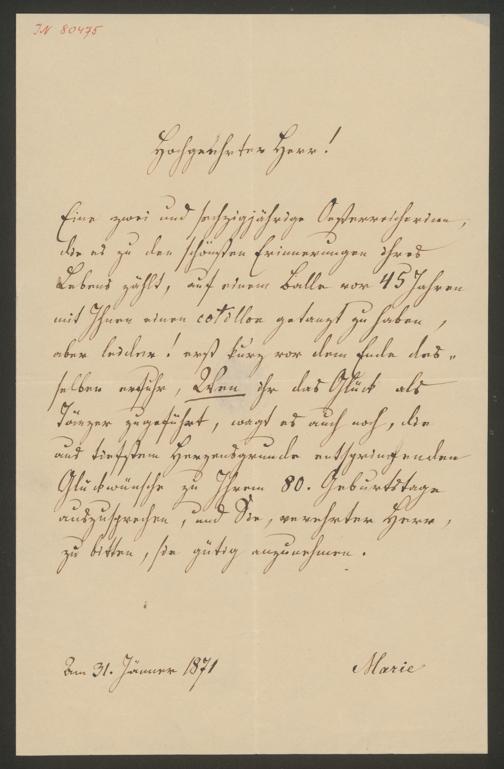 IN 80475
Hochgeehrter Herr!
Eine zwei und sechzigjährige Oesterreicherinn,
die es zu den schönsten Erinnerungen ihres
Lebens zählt, auf einem Balle vor 45 Jahren
mit Ihnen einen cotillon getanzt zu haben,
aber leider! erst kurz vor dem Ende des-
selben erfuhr, Wen ihr das Glück als
Tänzer zugeführt, wagt es auch noch, die
aus tiefstem Herzensgrunde entspringenden
Glückwünsche zu Ihrem 80. Geburtstage
auszusprechen, und Sie, verehrter Herr,
zu bitten, sie gütig anzunehmen.
Am 31. Jänner 1871
Marie